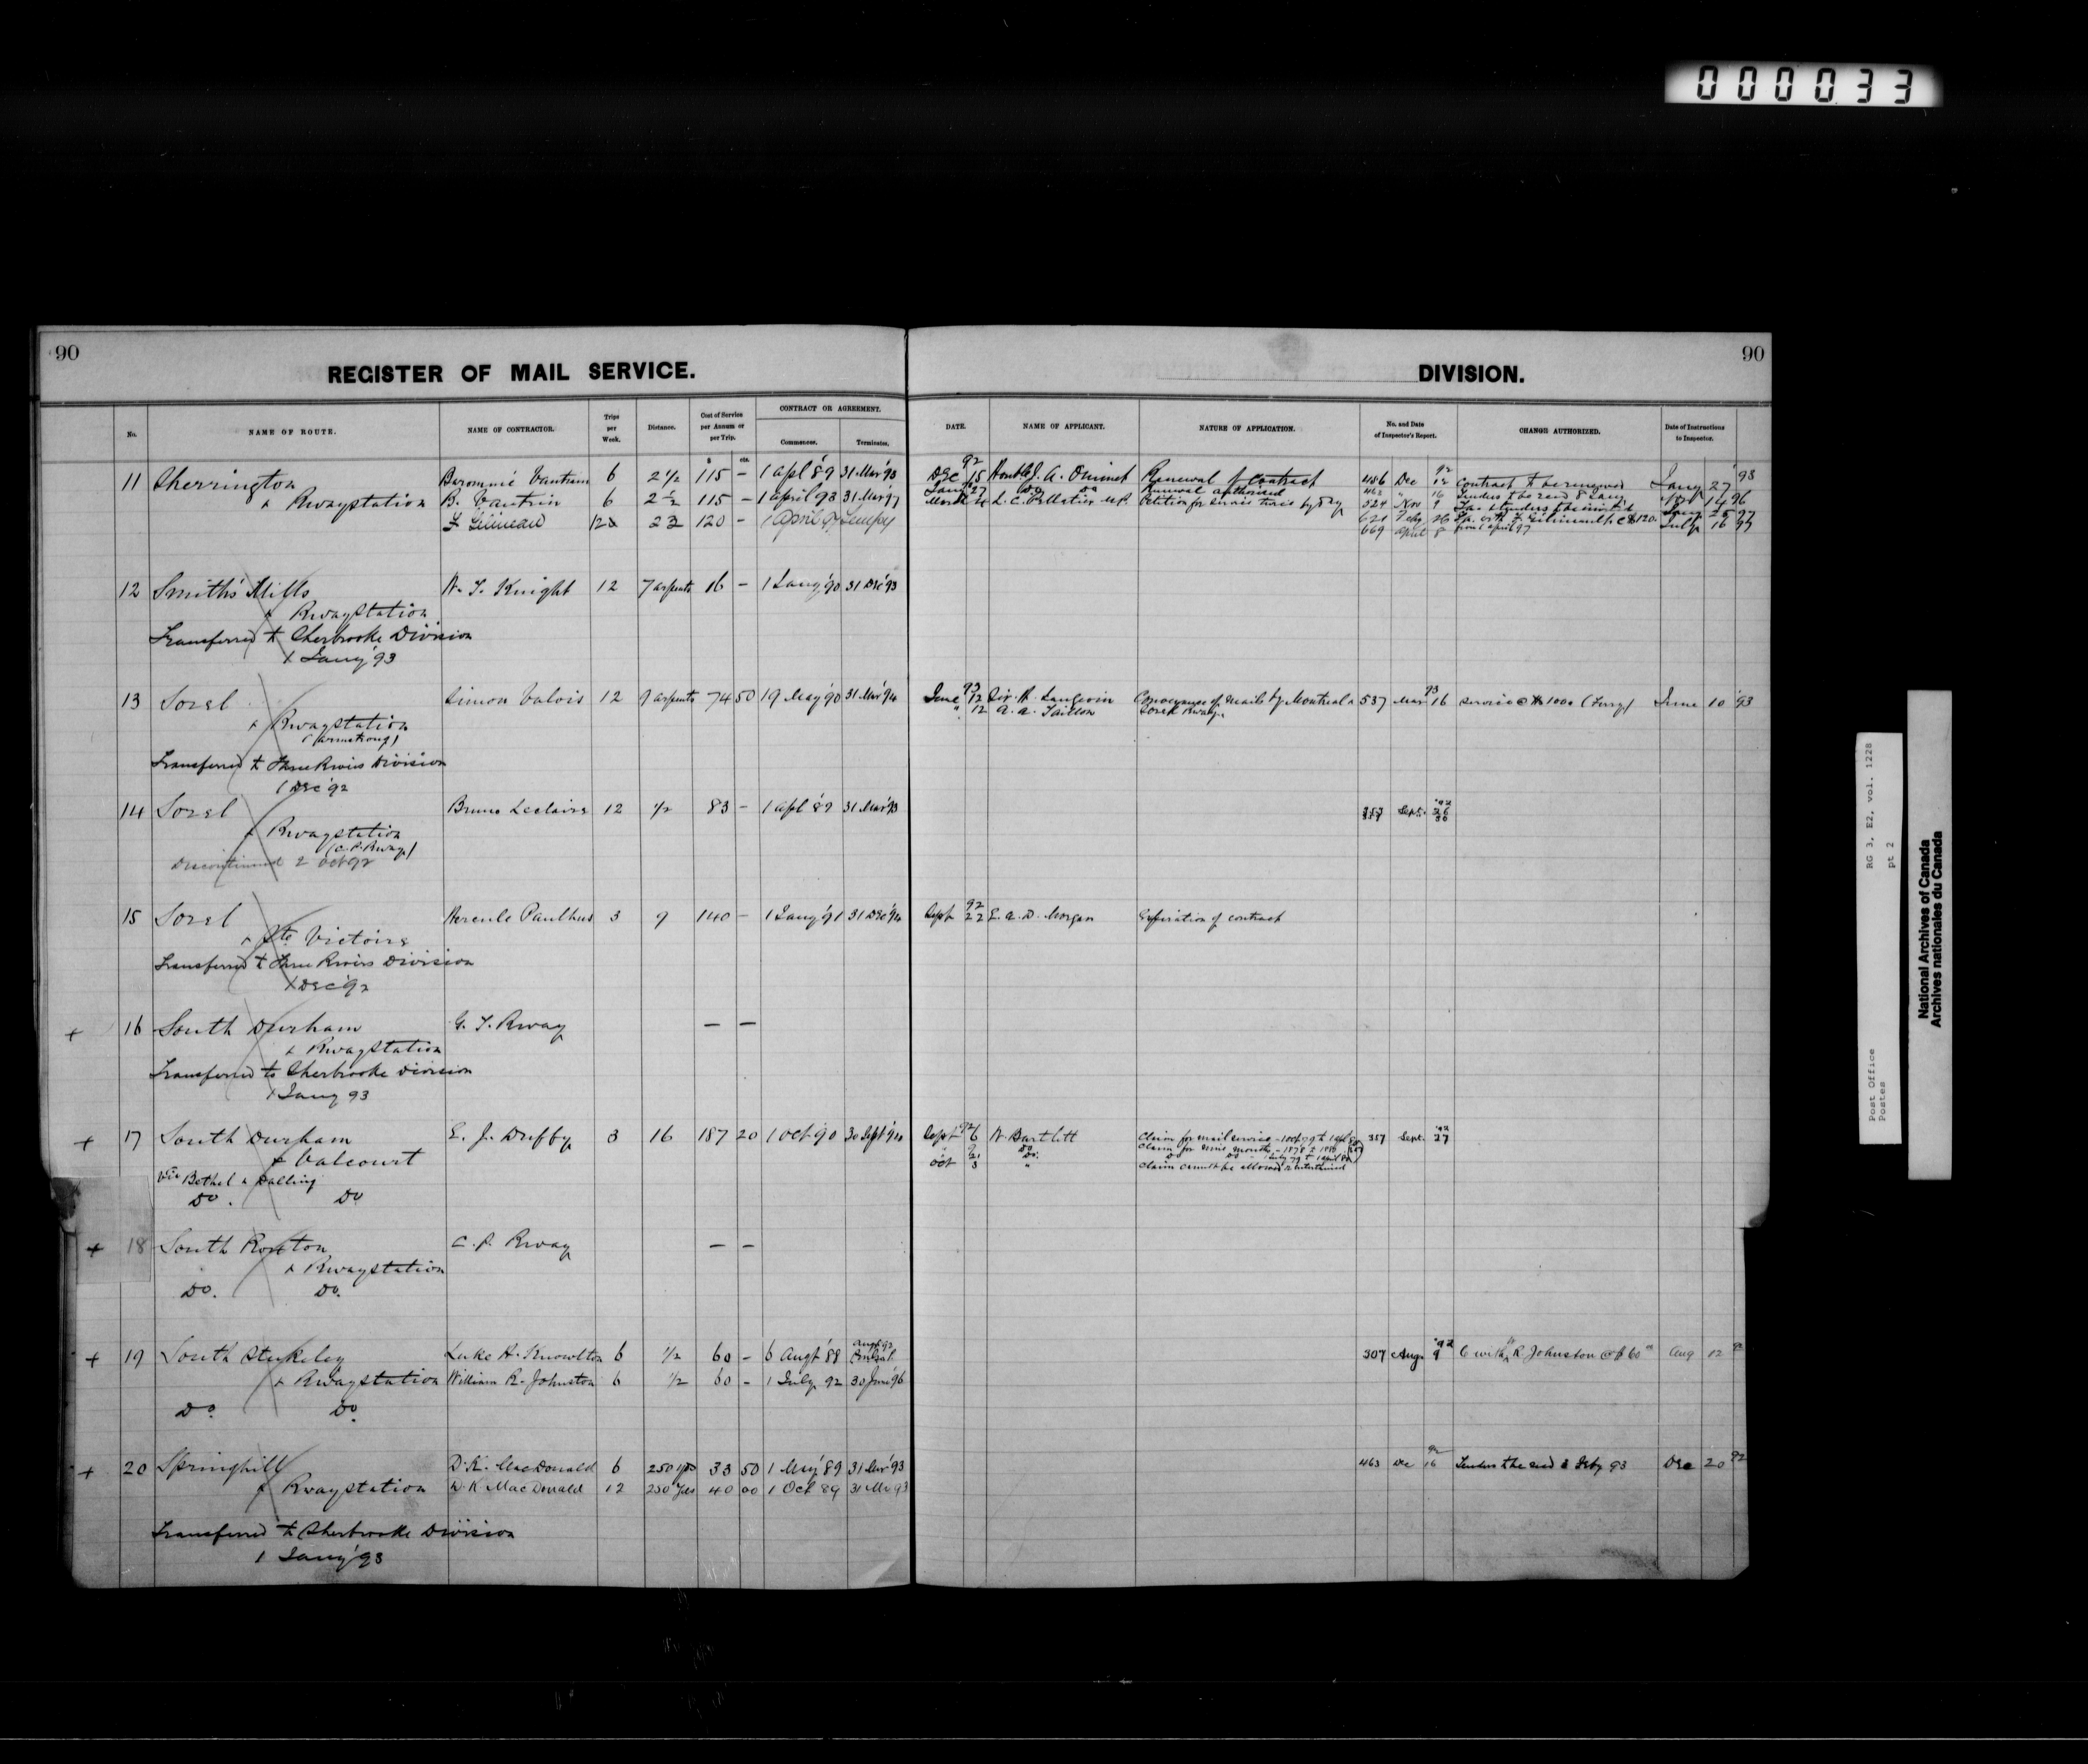 000033
90
REGISTER OF MAIL SERVICE.
DIVISION.
90
No. NAME OF ROUTE. NAME OF CONTRACTOR. Trips per Week. Distance. Cost of Service per Annum or per Trip. CONTRACT OR AGREEMENT. Commences. Terminates. DATE. NAME OF APPLICANT. NATURE OF APPLICATION. No. and Date of Inspector's Report. CHANGE AUTHORIZED. Date of Instructions to Inspector.
$ cts.
11 Sherrington 6 2 1/2 115 - 1 apl '89 31 Mar '93 Dec 92 15 Honble J. A. Ouimet Renewal of Contract 456 Dec 92 Contract to be renewed Jany 27 '93
& Rwaystation B. Vautrin 6 2 1/2 115 - 1 april 93 31 Mar 97 Jany 27 Do Do Renewal authorised
120 - 1 april 97
12 Smith's Mills W. T. Knight 12 7 arpents 16 - 1 Jany '90 31 Dec '93
& Rwaystation
Transferred to Sherbrooke Division
1 Jany '93
13 Sorel Simon Valois 12 9 arpents 74 50 19 May '90 31 Mar '94 June 93 12 Sir H. Langevin Conveyance of Mails by Montreal & 537 Mar 93 16 service @ $100 (Ferry) June 10 '93
& Rwaystation " 12 A. A. Taillon Sorel Rway
(Armstrong)
Transferred to Three Rivers Division
1 Dec '92
14 Sorel Bruno Leclaire 12 1/2 83 - 1 apl '89 31 Mar '93 Sept. '92
& Rwaystation
(C. P. Rway)
Discontinued 2 Oct 92
15 Sorel Hercule Paulhus 3 9 140 - 1 Jany '91 31 Dec '94 Sept 92 22 E. A. D. Morgan Expiration of contract
& Ste Victoire
Transferred to Three Rivers Division
1 Dec '92
+ 16 South Durham G. T. Rway - -
& Rwaystation
Transferred to Sherbrooke Division
1 Jany 93
+ 17 South Durham E. J. Duffy 3 16 187 20 1 Oct '90 30 Sept '94 Sept 92 6 W. Bartlitt Claim for mail service 357 Sept. '92 27
& Valcourt
Via Bethel & Dalling Oct 3 " Claim cannot be allowed
Do. Do
+ 18 South Roxton C. P. Rway - -
& Rwaystation
Do. Do.
+ 19 South Stukeley Luke H. Knowlton 6 1/2 60 - 6 Augt '88 307 Aug. '92 9 C with R. Johnston @ $60 Aug 12 92
& Rwaystation William R. Johnston 6 1/2 60 - 1 July 92 30 June '96
Do. Do.
+ 20 Springhill D. K. MacDonald 6 250 yds 33 50 1 May '89 31 Mar '93 463 Dec 92 16 Tenders to be recd 3 Feby 93 Dec 20 92
& Rwaystation D. K. MacDonald 12 250 yds 40 00 1 Oct 89 31 Mr 93
Transferred to Sherbrooke Division
1 Jany '93
Post Office
Postes
RG 3, E2, vol. 1228
pt 2
National Archives of Canada
Archives nationales du Canada